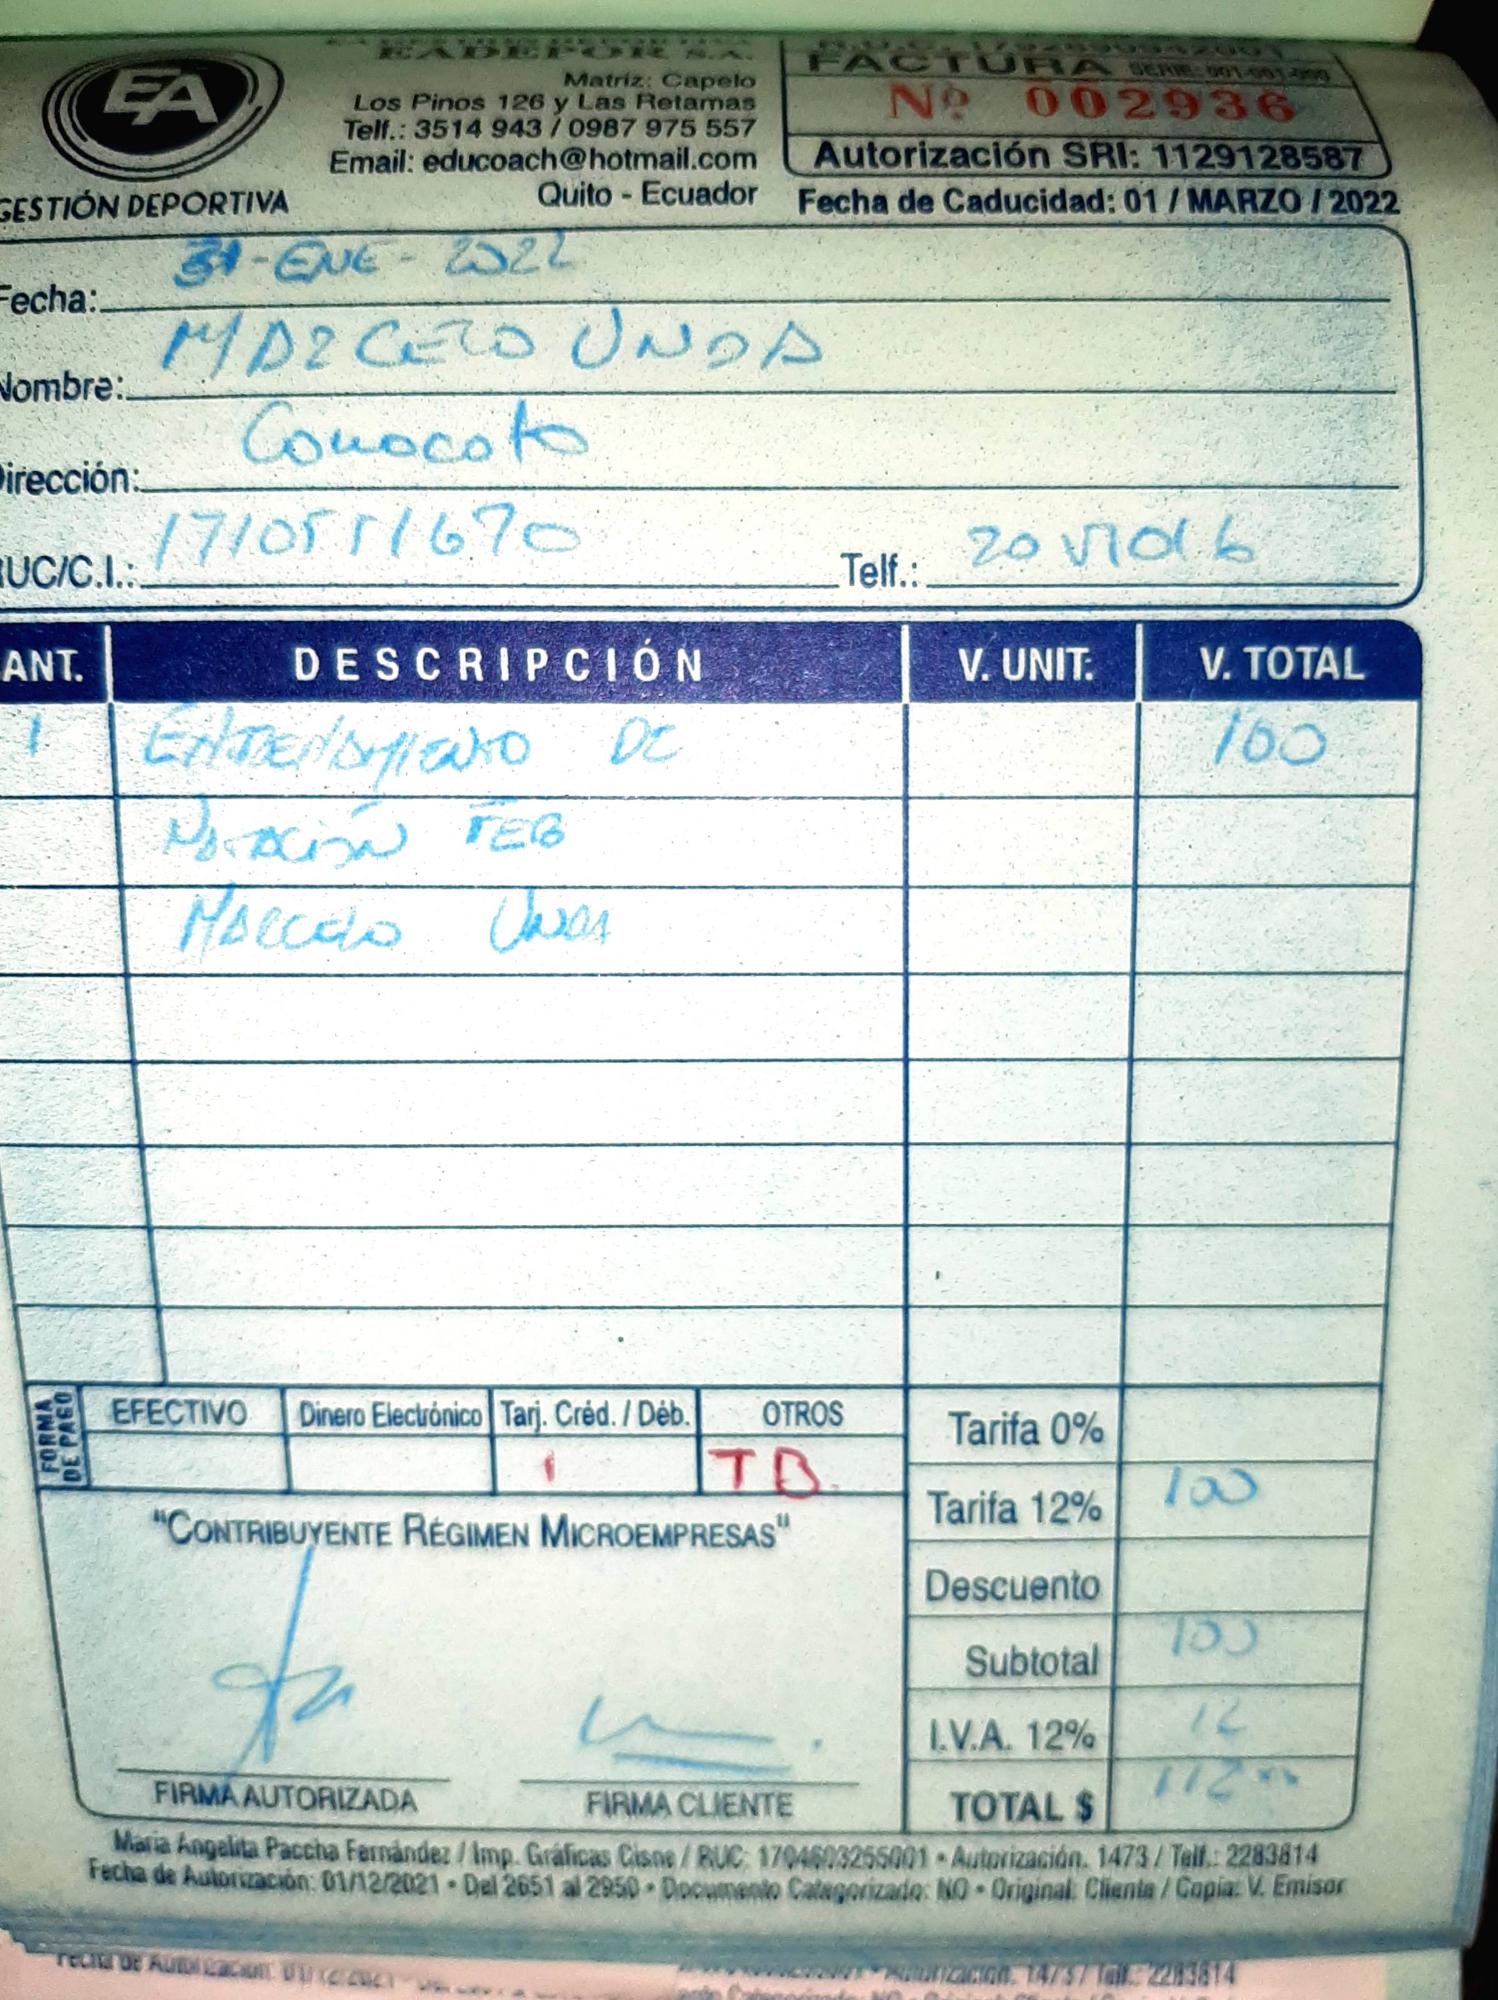 EA
GESTIÓN DEPORTIVA
EADEPOR S.A.
Matriz: Capelo
Los Pinos 126 y Las Retamas
Telf.: 3514 943 / 0987 975 557
Email: educoach@hotmail.com
Quito - Ecuador
FACTURA SERIE: 001-001-000
Nº 002936
Autorización SRI: 1129128587
Fecha de Caducidad: 01 / MARZO / 2022
Fecha: 31-ENE-2022
Nombre: MARCELO UNDA
Dirección: Conocoto
RUC/C.I.: 1710551670 Telf.:
ANT. DESCRIPCIÓN V. UNIT. V. TOTAL
1 ENTRENAMIENTO DE 100
NATACIÓN FEB
MARCELO UNDA
FORMA DE PAGO
EFECTIVO Dinero Electrónico Tarj. Créd. / Déb. OTROS
TB.
Tarifa 0%
Tarifa 12% 100
Descuento
Subtotal 100
I.V.A. 12% 12
TOTAL $ 112
"CONTRIBUYENTE RÉGIMEN MICROEMPRESAS"
FIRMA AUTORIZADA FIRMA CLIENTE
María Angelita Paccha Fernández / Imp. Gráficas Cisne / RUC: 1704603255001 • Autorización. 1473 / Telf.: 2283814
Fecha de Autorización: 01/12/2021 • Del 2651 al 2950 • Documento Categorizado: NO • Original: Cliente / Copia: V. Emisor
Fecha de Autorización: 01/12/2021 Autorización. 1473 / Telf.: 2283814